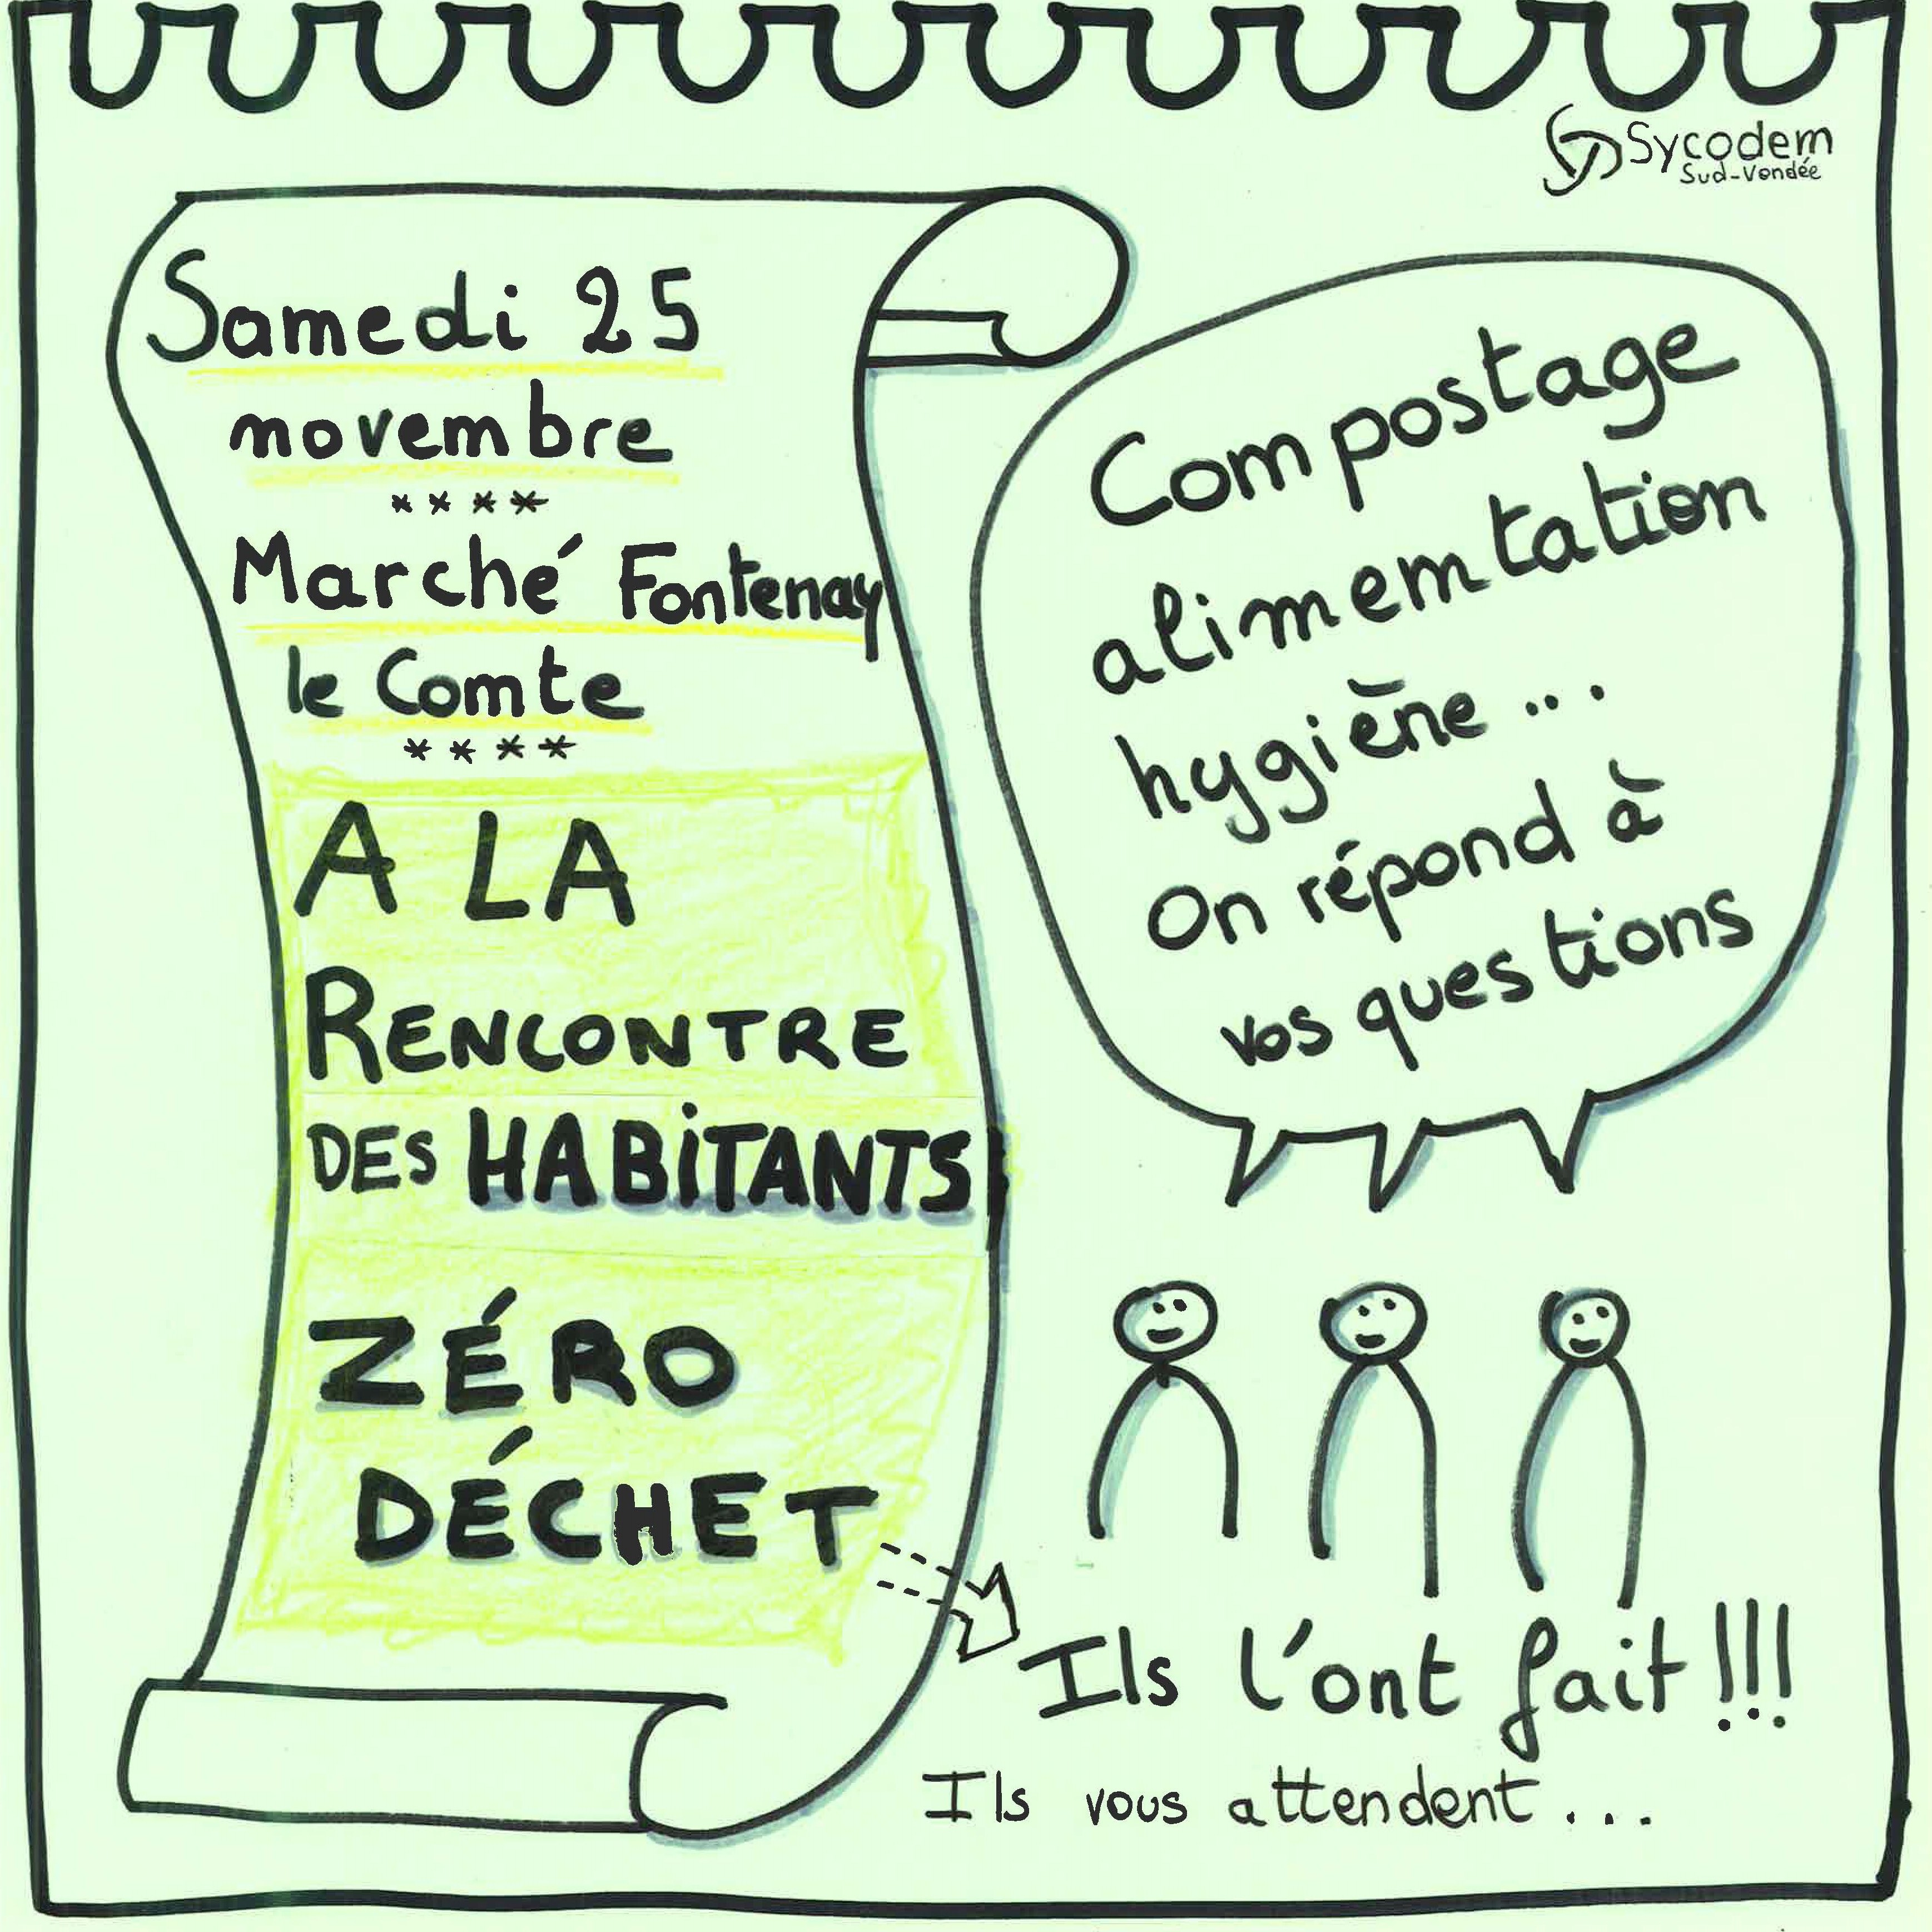 Sycodem
Sud-Vendée
Samedi 25
novembre
****
Marché Fontenay
le Comte
****
A LA
RENCONTRE
DES HABiTANTS
ZÉRO
DÉCHET
Compostage
alimentation
hygiène ...
On répond à
vos questions
Ils l'ont fait !!!
Ils vous attendent...